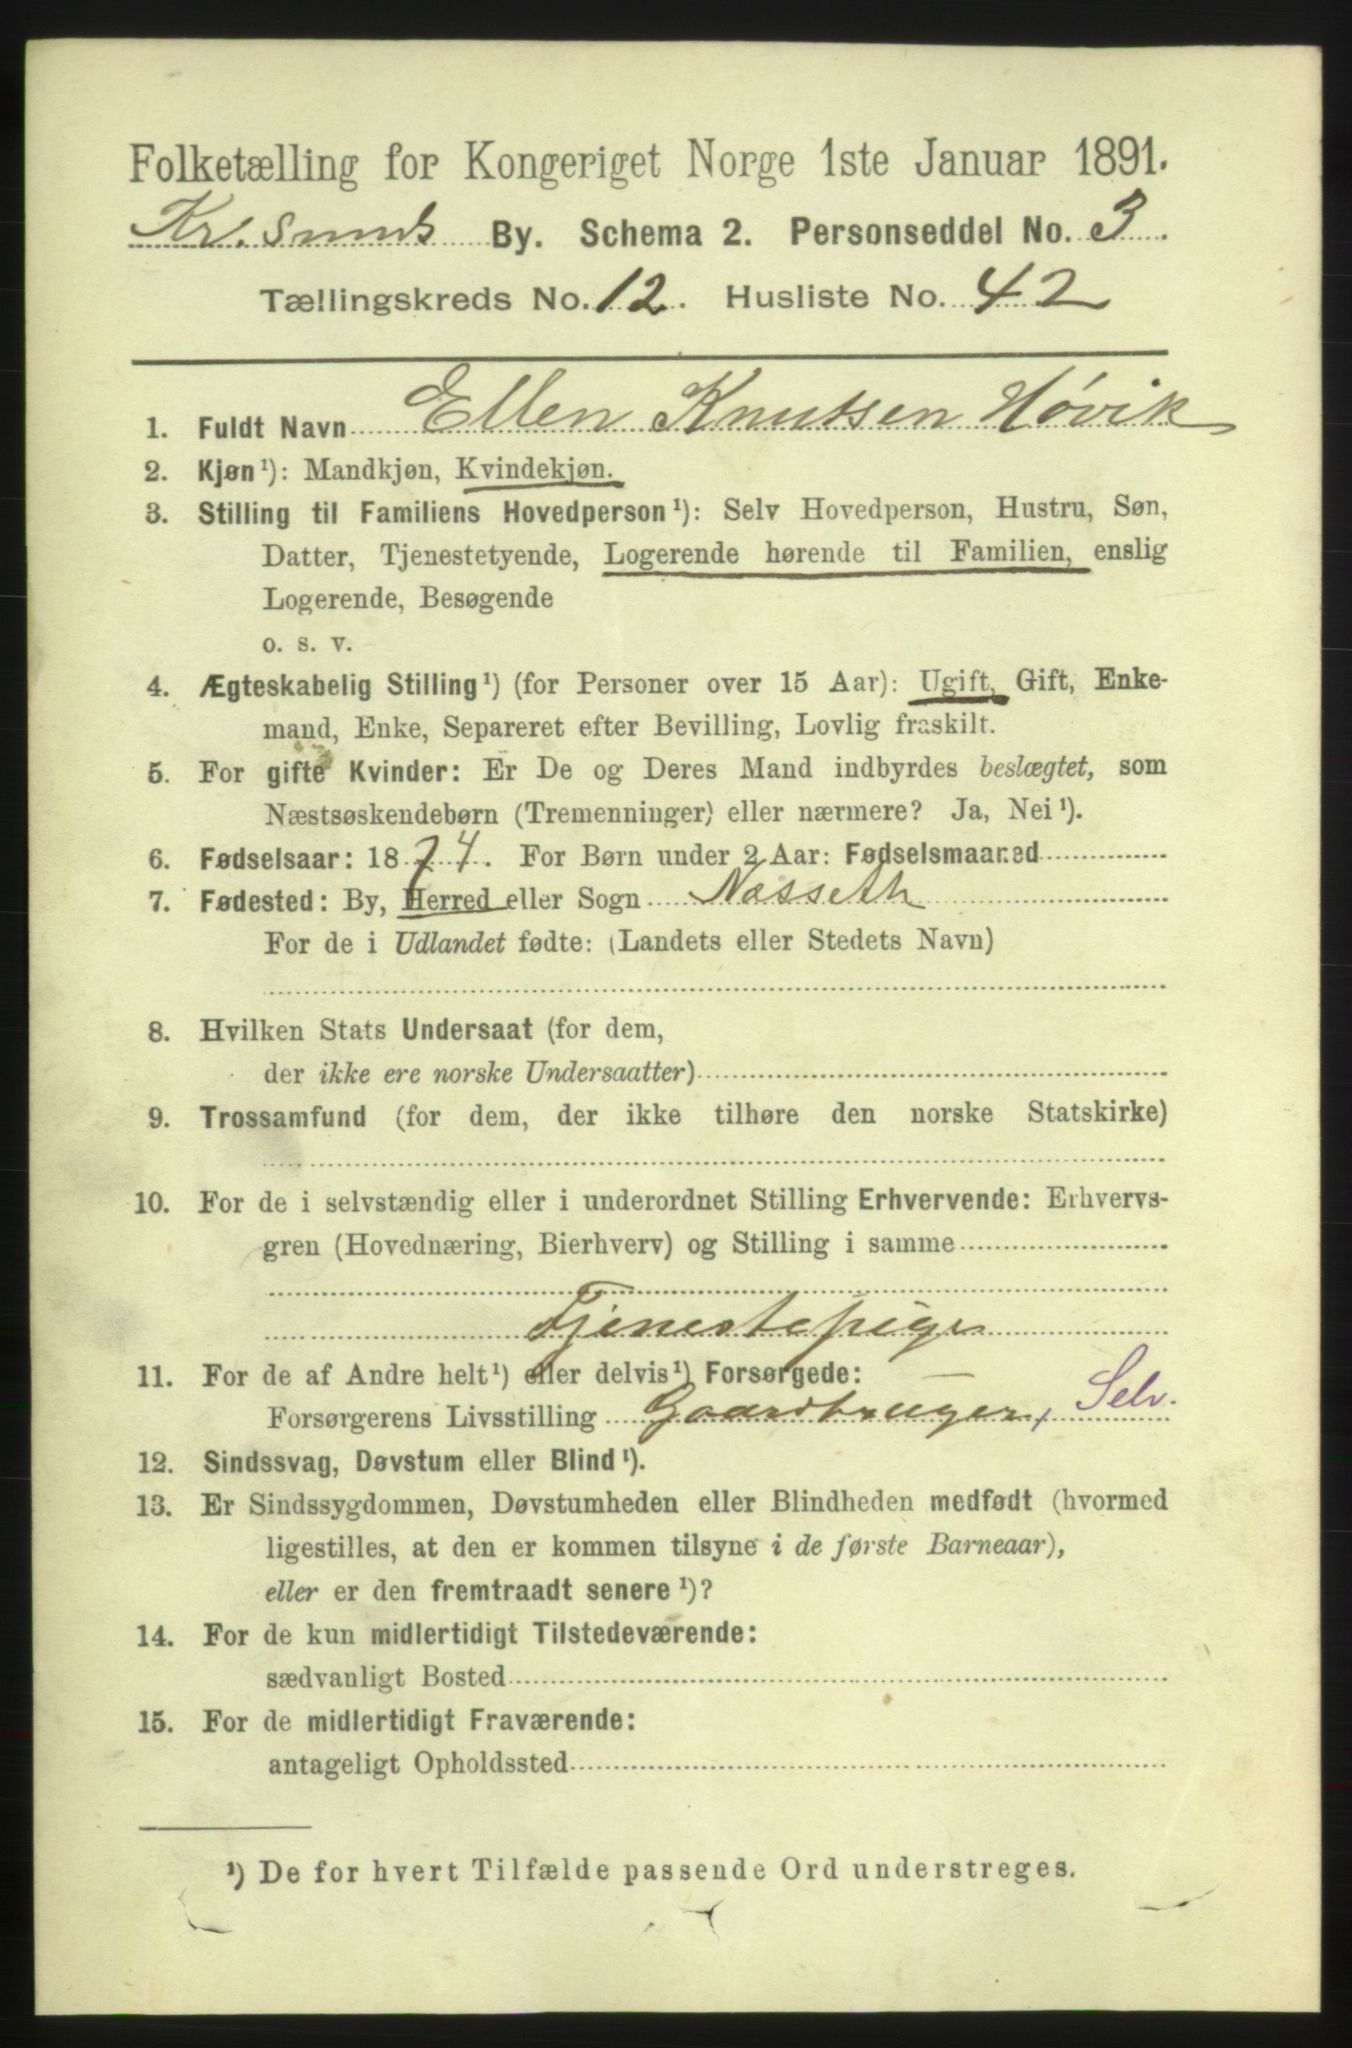 Folketælling for Kongeriget Norge 1ste Januar 1891.
Kr. sunds By. Schema 2. Personseddel No. 3.
Tællingskreds No. 12. Husliste No. 42
1. Fuldt Navn Ellen Knutsen Høvik
2. Kjøn¹): Mandkjøn, Kvindekjøn.
3. Stilling til Familiens Hovedperson¹): Selv Hovedperson, Hustru, Søn,
Datter, Tjenestetyende, Logerende hørende til Familien, enslig
Logerende, Besøgende
o. s. v.
4. Ægteskabelig Stilling¹) (for Personer over 15 Aar): Ugift, Gift, Enke-
mand, Enke, Separeret efter Bevilling, Lovlig fraskilt.
5. For gifte Kvinder: Er De og Deres Mand indbyrdes beslægtet, som
Næstsøskendebørn (Tremenninger) eller nærmere? Ja, Nei¹).
6. Fødselsaar: 1874. For Børn under 2 Aar: Fødselsmaaned
7. Fødested: By, Herred eller Sogn Næsseth
For de i Udlandet fødte: (Landets eller Stedets Navn)
8. Hvilken Stats Undersaat (for dem,
der ikke ere norske Undersaatter)
9. Trossamfund (for dem, der ikke tilhøre den norske Statskirke)
10. For de i selvstændig eller i underordnet Stilling Erhvervende: Erhvervs-
gren (Hovednæring, Bierhverv) og Stilling i samme
Tjenestepige
11. For de af Andre helt¹) eller delvis¹) Forsørgede:
Forsørgerens Livsstilling Gaardbruger, Selv.
12. Sindssvag, Døvstum eller Blind¹).
13. Er Sindssygdommen, Døvstumheden eller Blindheden medfødt (hvormed
ligestilles, at den er kommen tilsyne i de første Barneaar),
eller er den fremtraadt senere¹)?
14. For de kun midlertidigt Tilstedeværende:
sædvanligt Bosted
15. For de midlertidigt Fraværende:
antageligt Opholdssted
¹) De for hvert Tilfælde passende Ord understreges.